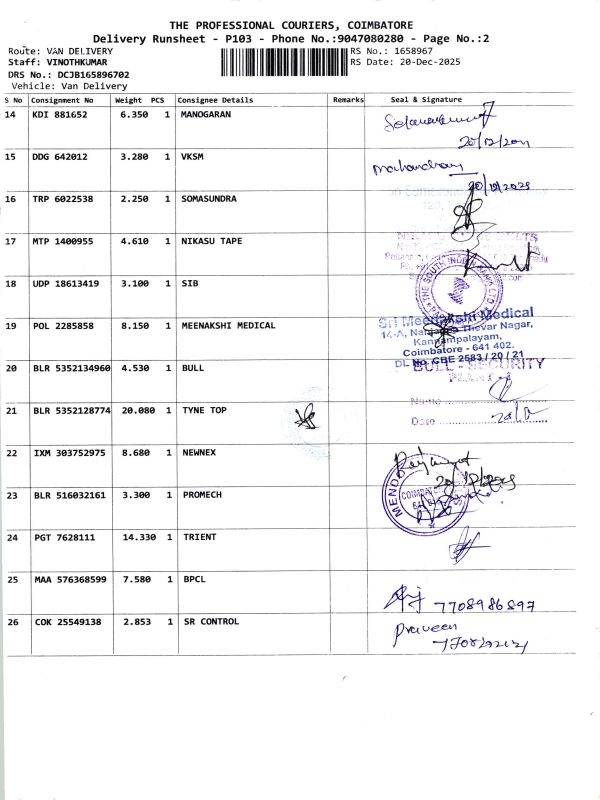 THE PROFESSIONAL COURIERS, COIMBATORE
Delivery Runsheet - P103 - Phone No.:9047080280 - Page No.:2
Route: VAN DELIVERY RS No.: 1658967
Staff: VINOTHKUMAR RS Date: 20-Dec-2025
DRS No.: DCJB165896702
Vehicle: Van Delivery
S No Consignment No Weight PCS Consignee Details Remarks Seal & Signature
14 KDI 881652 6.350 1 MANOGARAN
15 DDG 642012 3.280 1 VKSM
20/12/2025
16 TRP 6022538 2.250 1 SOMASUNDRA
17 MTP 1400955 4.610 1 NIKASU TAPE
18 UDP 18613419 3.100 1 SIB
THE SOUTH INDIAN BANK LTD
19 POL 2285858 8.150 1 MEENAKSHI MEDICAL
Sri Meenakshi Medical
14-A, Nanjappa Thevar Nagar,
Kannampalayam,
Coimbatore - 641 402.
DL No CBE 2583 / 20 / 21
20 BLR 5352134960 4.530 1 BULL
BULL - SECURITY
PLANT-1
Name
21 BLR 5352128774 20.080 1 TYNE TOP
Date 20/12
22 IXM 303752975 8.680 1 NEWNEX
20/12/2025
23 BLR 516032161 3.300 1 PROMECH
COIMBATORE
24 PGT 7628111 14.330 1 TRIENT
25 MAA 576368599 7.580 1 BPCL
7708986897
26 COK 25549138 2.853 1 SR CONTROL
Praveen